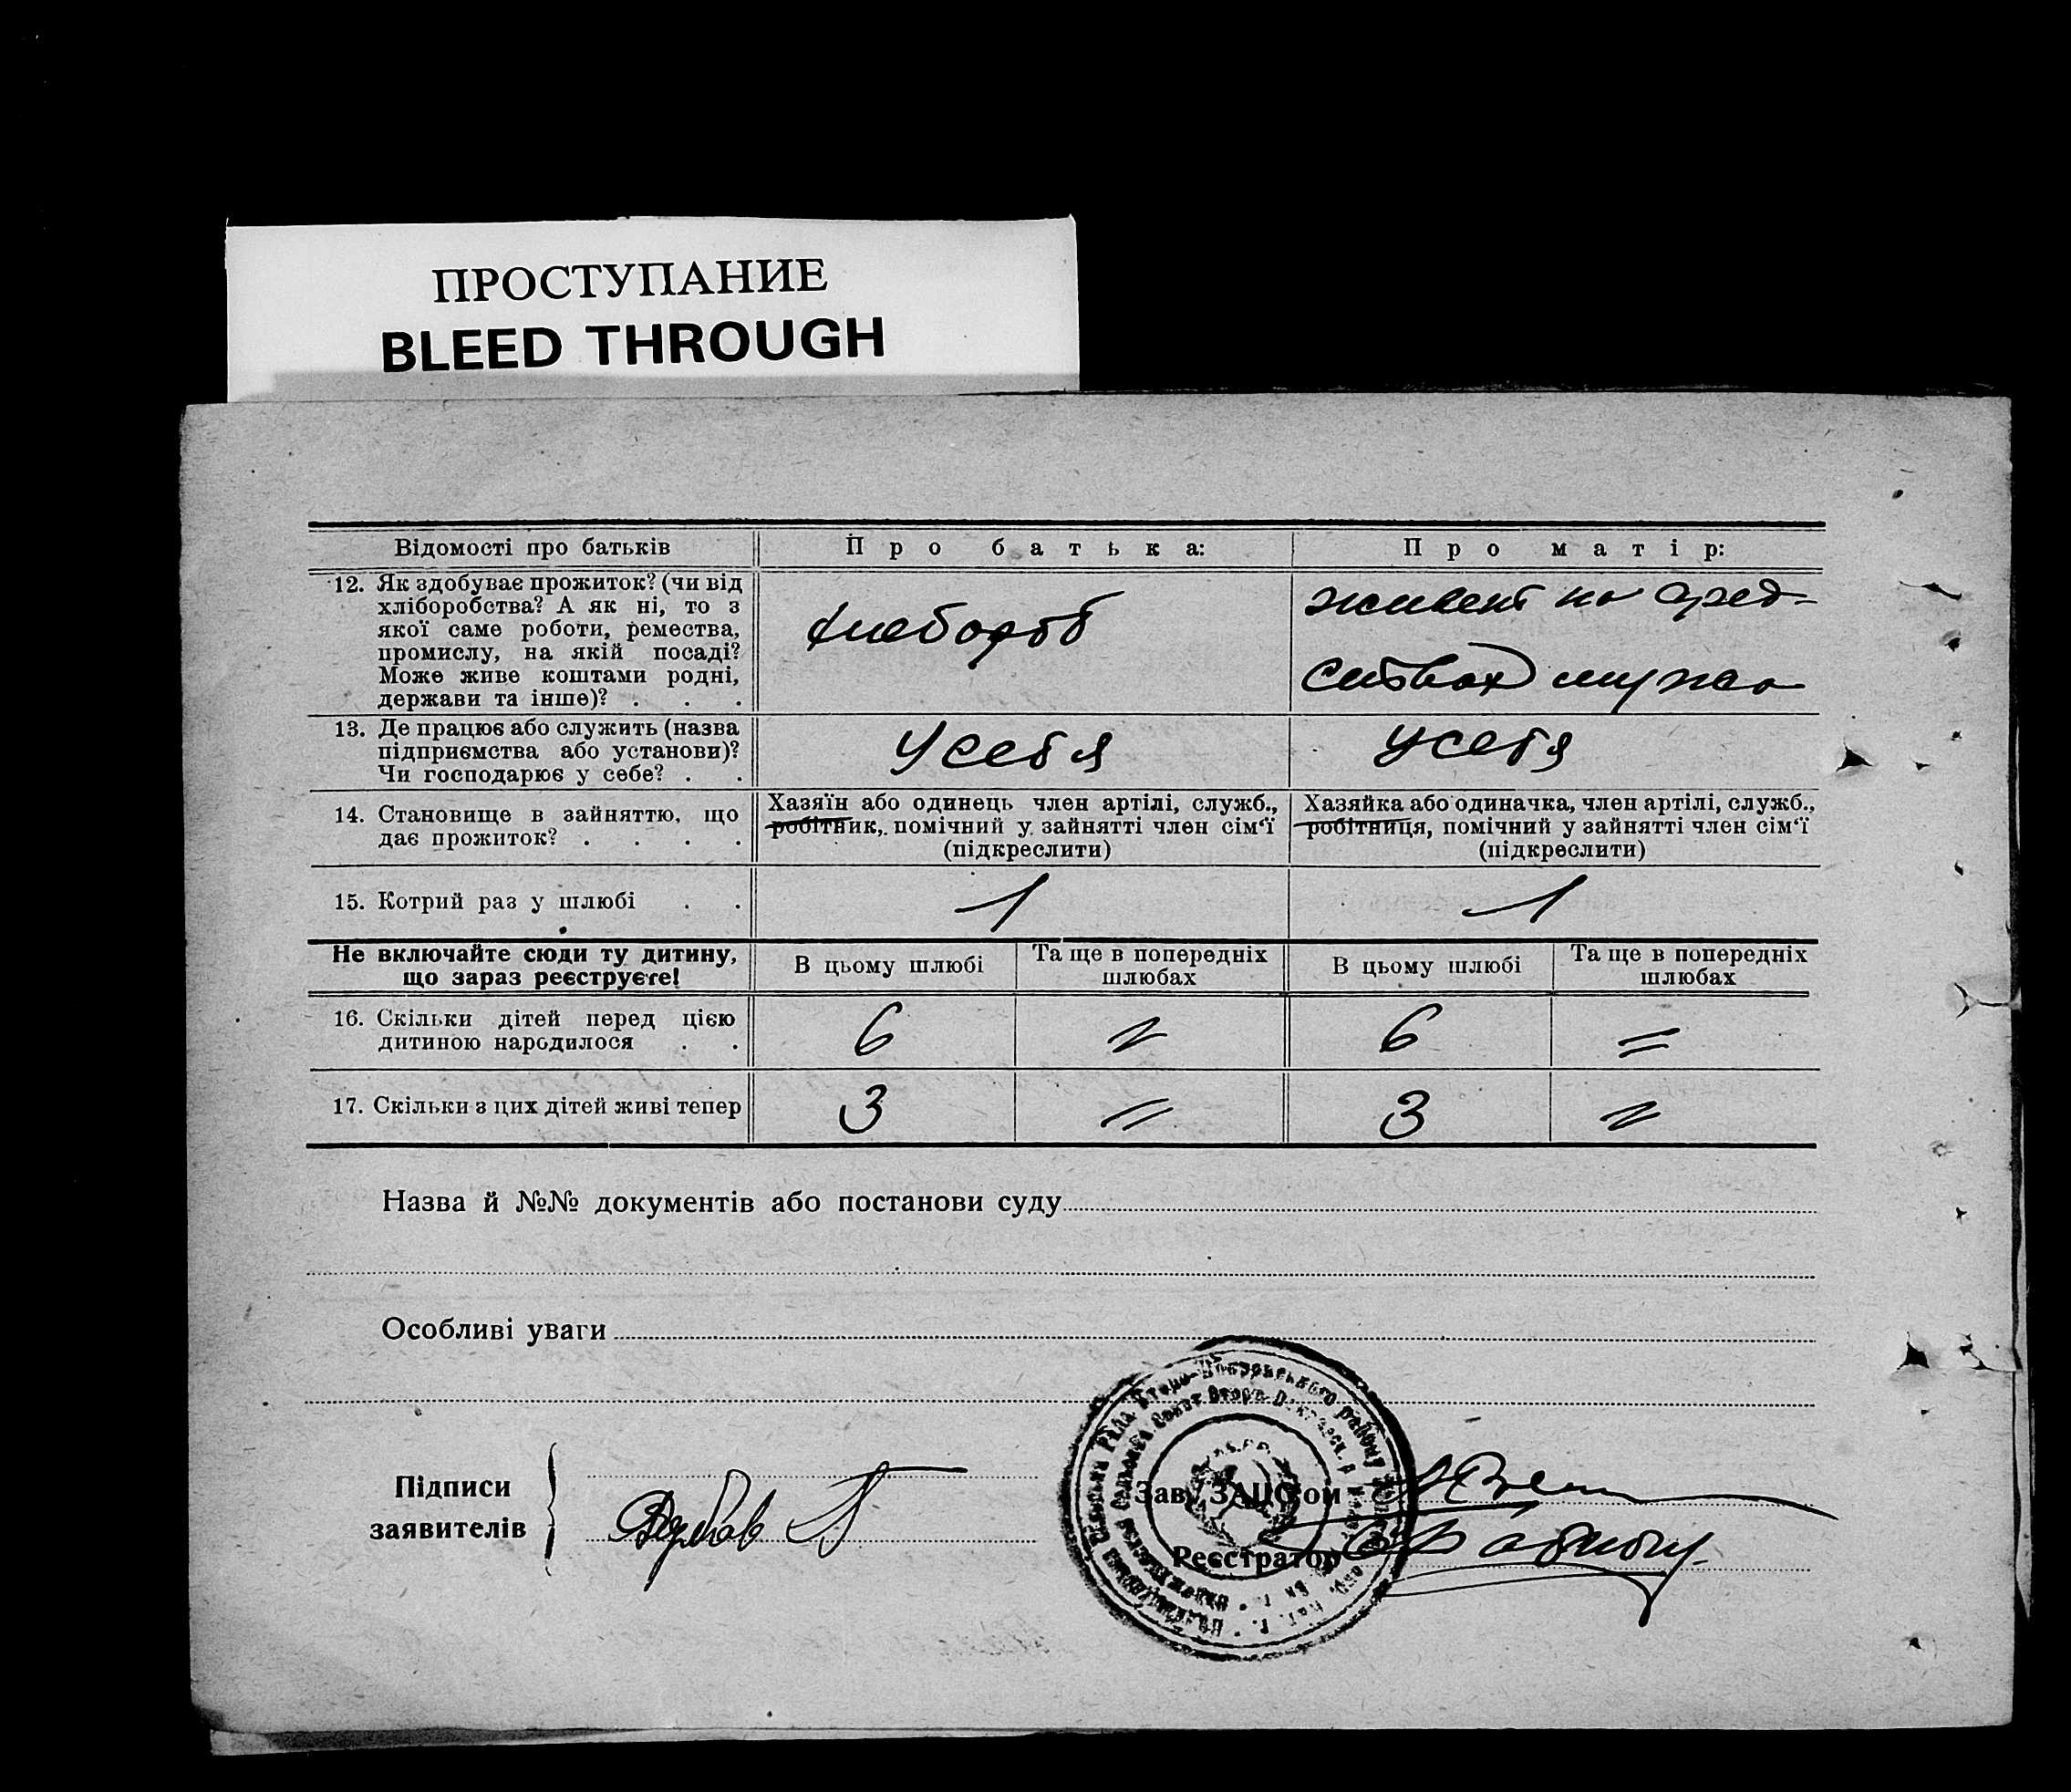 ПРОСТУПАНИЕ
BLEED THROUGH
Відомості про батьків
Про батька:
Про матір:
12. Як здобуває прожиток? (чи від
хліборобства? А як ні, то з
якої саме роботи, ремества,
промислу, на якій посаді?
Може живе коштами родні,
держави та інше)? . . .
хлебороб
живет на сред-
ствах мужа
13. Де працює або служить (назва
підприємства або установи)?
Чи господарює у себе? . .
у себя
у себя
14. Становище в зайняттю, що
дає прожиток? . . . .
Хазяїн або одинець член артілі, служб.,
робітник, помічний у зайнятті член сім'ї
(підкреслити)
Хазяйка або одиначка, член артілі, служб.,
робітниця, помічний у зайнятті член сім'ї
(підкреслити)
15. Котрий раз у шлюбі . .
1
1
Не включайте сюди ту дитину,
що зараз реєструєте!
В цьому шлюбі
Та ще в попередніх
шлюбах
В цьому шлюбі
Та ще в попередніх
шлюбах
16. Скільки дітей перед цією
дитиною народилося . .
6
=
6
=
17. Скільки з цих дітей живі тепер
3
=
3
=
Назва й №№ документів або постанови суду
Особливі уваги
Підписи
заявителів
Зав. ЗАЦС'ом
Реєстратор